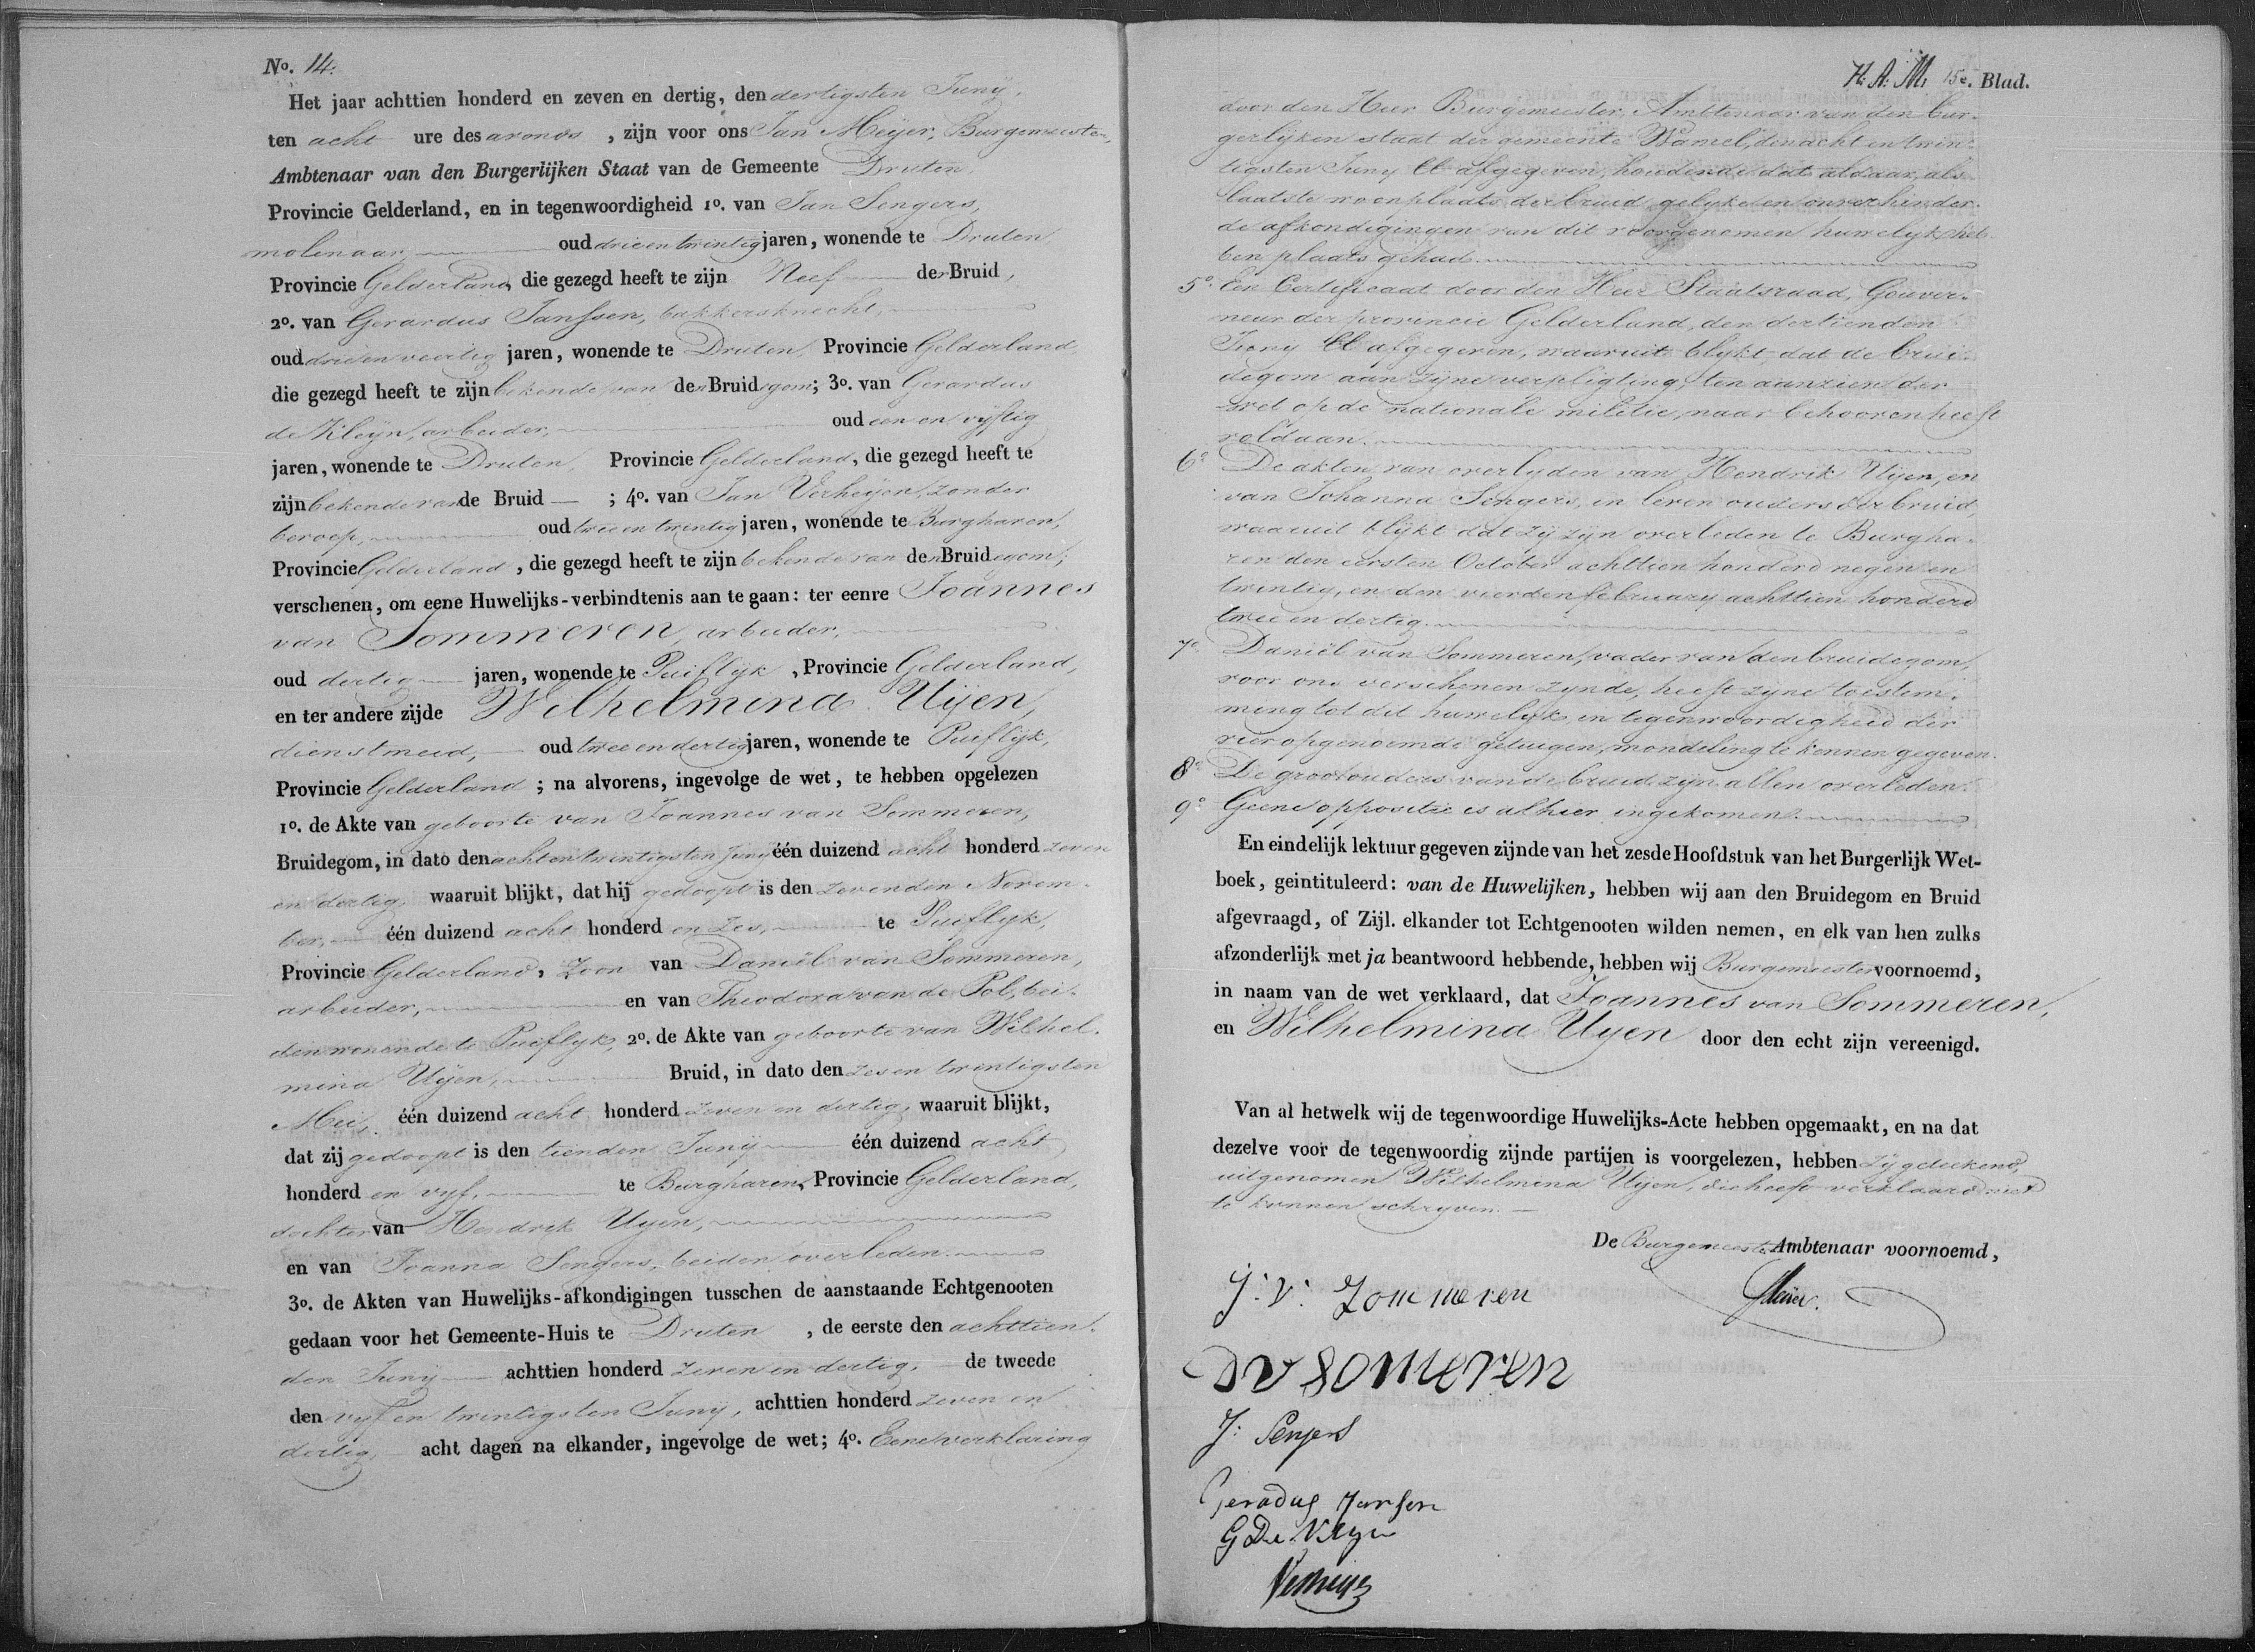 No. 14.
Het jaar achttien honderd en zeven en dertig, den dertigsten Junij,
ten acht ure des avonds , zijn voor ons Jan Meijer, Burgemeester,
Ambtenaar van den Burgerlijken Staat van de Gemeente Druten
Provincie Gelderland, en in tegenwoordigheid 1o. van Jan Sengers,
molenaar, oud drie en twintig jaren, wonende te Druten
Provincie Gelderland, die gezegd heeft te zijn Neef der Bruid,
2o. van Gerardus Janssen, bakkersknecht,
oud drie en veertig jaren, wonende te Druten, Provincie Gelderland
die gezegd heeft te zijn bekende van den Bruidegom; 3o. van Gerardus
de Kleijn, arbeider, oud een en vyftig
jaren, wonende te Druten, Provincie Gelderland, die gezegd heeft te
zijn bekende van de Bruid ; 4o. van Jan Verheijen, zonder
beroep, oud twee en twintig jaren, wonende te Burgharen,
Provincie Gelderland, die gezegd heeft te zijn bekende van den Bruidegom;
verschenen, om eene Huwelijks-verbindtenis aan te gaan: ter eenre Joannes
van Sommeren, arbeider,
oud dertig jaren, wonende te Puiflijk, Provincie Gelderland,
en ter andere zijde Wilhelmina Uijen,
dienstmeid, oud twee en dertig jaren, wonende te Puiflijk,
Provincie Gelderland; na alvorens, ingevolge de wet, te hebben opgelezen
1o. de Akte van geboorte van Joannes van Sommeren,
Bruidegom, in dato den acht en twintigsten Junij één duizend acht honderd zeven
en dertig, waaruit blijkt, dat hij gedoopt is den zevenden Novem-
ber, één duizend acht honderd en zes, te Puiflijk,
Provincie Gelderland, Zoon van Daniël van Sommeren,
arbeider, en van Theodora van de Pol, bei-
den wonende te Puiflyk, 2o. de Akte van geboorte van Wilhel-
mina Uijen, Bruid, in dato den zes en twintigsten
Mei, één duizend acht honderd zeven en dertig, waaruit blijkt,
dat zij gedoopt is den tienden Junij één duizend acht
honderd en vyf, te Burgharen, Provincie Gelderland,
dochter van Hendrik Uyen,
en van Joanna Sengers, beiden overleden.
3o. de Akten van Huwelijks-afkondigingen tusschen de aanstaande Echtgenooten
gedaan voor het Gemeente-Huis te Druten , de eerste den achttien-
den Junij achttien honderd zeven en dertig, de tweede
den vyf en twintigsten Junij, achttien honderd zeven en
dertig, acht dagen na elkander, ingevolge de wet; 4o. Eene verklaring
H. A. M. 15e. Blad.
door den Heer Burgemeester, Ambtenaar van den bur-
gerlyken staat der gemeente Wamel, den acht en twin-
tigsten Juny ll afgegeven, houdende dat aldaar, als
laatste woonplaats der bruid, gelyke en onverhinder-
de afkondigingen van dit voorgenomen huwelyk heb-
ben plaats gehad.
5o. Een Certificaat door den Heer Staatsraad, Gouver-
neur der provincie Gelderland, den dertienden
Juny ll afgegeven, waaruit blykt dat de brui-
degom aan zyne verpligting, ten aanzien der
wet op de nationale militie, naar behooren heeft
voldaan.
6o. De akten van overlyden van Hendrik Uijen, en
van Johanna Sengers, in leven ouders der bruid,
waaruit blijkt dat zij zijn overleden te Burgha-
ren den eersten October achttien honderd negen en
twintig, en den vierden february achttien honderd
twee en dertig.
7o. Daniël van Sommeren, vader van den bruidegom,
voor ons verschenen zynde, heeft zyne toestem-
ming tot dit huwelyk in tegenwoordigheid der
vier opgenoemde getuigen, mondeling te kennen gegeven.
8o. De grootouders van de bruid zyn allen overleden.
9o. Geene oppositie is alhier ingekomen.
En eindelijk lektuur gegeven zijnde van het zesde Hoofdstuk van het Burgerlijk Wet-
boek, geintituleerd: van de Huwelijken, hebben wij aan den Bruidegom en Bruid
afgevraagd, of Zijl. elkander tot Echtgenooten wilden nemen, en elk van hen zulks
afzonderlijk met ja beantwoord hebbende, hebben wij Burgemeester voornoemd,
in naam van de wet verklaard, dat Joannes van Sommeren,
en Wilhelmina Uyen door den echt zijn vereenigd.
Van al hetwelk wij de tegenwoordige Huwelijks-Acte hebben opgemaakt, en na dat
dezelve voor de tegenwoordig zijnde partijen is voorgelezen, hebben zij geteekend,
uitgenomen Wilhelmina Uijen, die heeft verklaard niet
te kunnen schryven.
De Burgemeester Ambtenaar voornoemd,
J: V: Zommeren
Meijer.
D V Someren
J: Sengers
Geradus Jansen
G De Kleyn
Verheijen